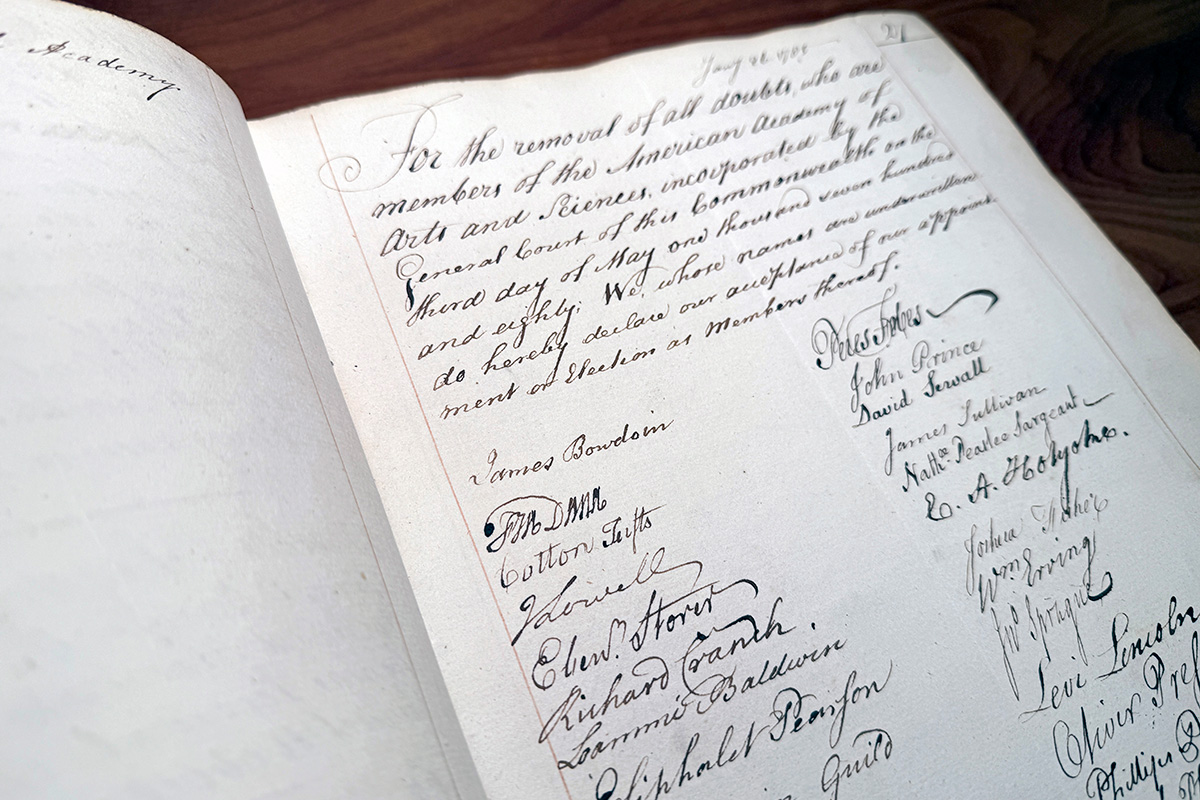 Academy.
21
For the removal of all doubts, who are
members of the American Academy of
Arts and Sciences, incorporated by the
General Court of this Commonwealth on the
third day of May one thousand seven hundred
and eighty; We, whose names are underwritten
do hereby declare our acceptance of our appoint-
ment or Election as Members thereof.
James Bowdoin
FRA DANA
Cotton Tufts
J Lowell
Ebenr. Storer
Richard Cranch.
Loammi Baldwin
Eliphalet Pearson
Guild
Peres Fobes
John Prince
David Sewall
James Sullivan
Nathl. Peaslee Sargeant
E. A. Holyoke.
Joshua Fisher
Wm Erving
Jno Sprague
Levi Lincoln
Oliver
Phillips